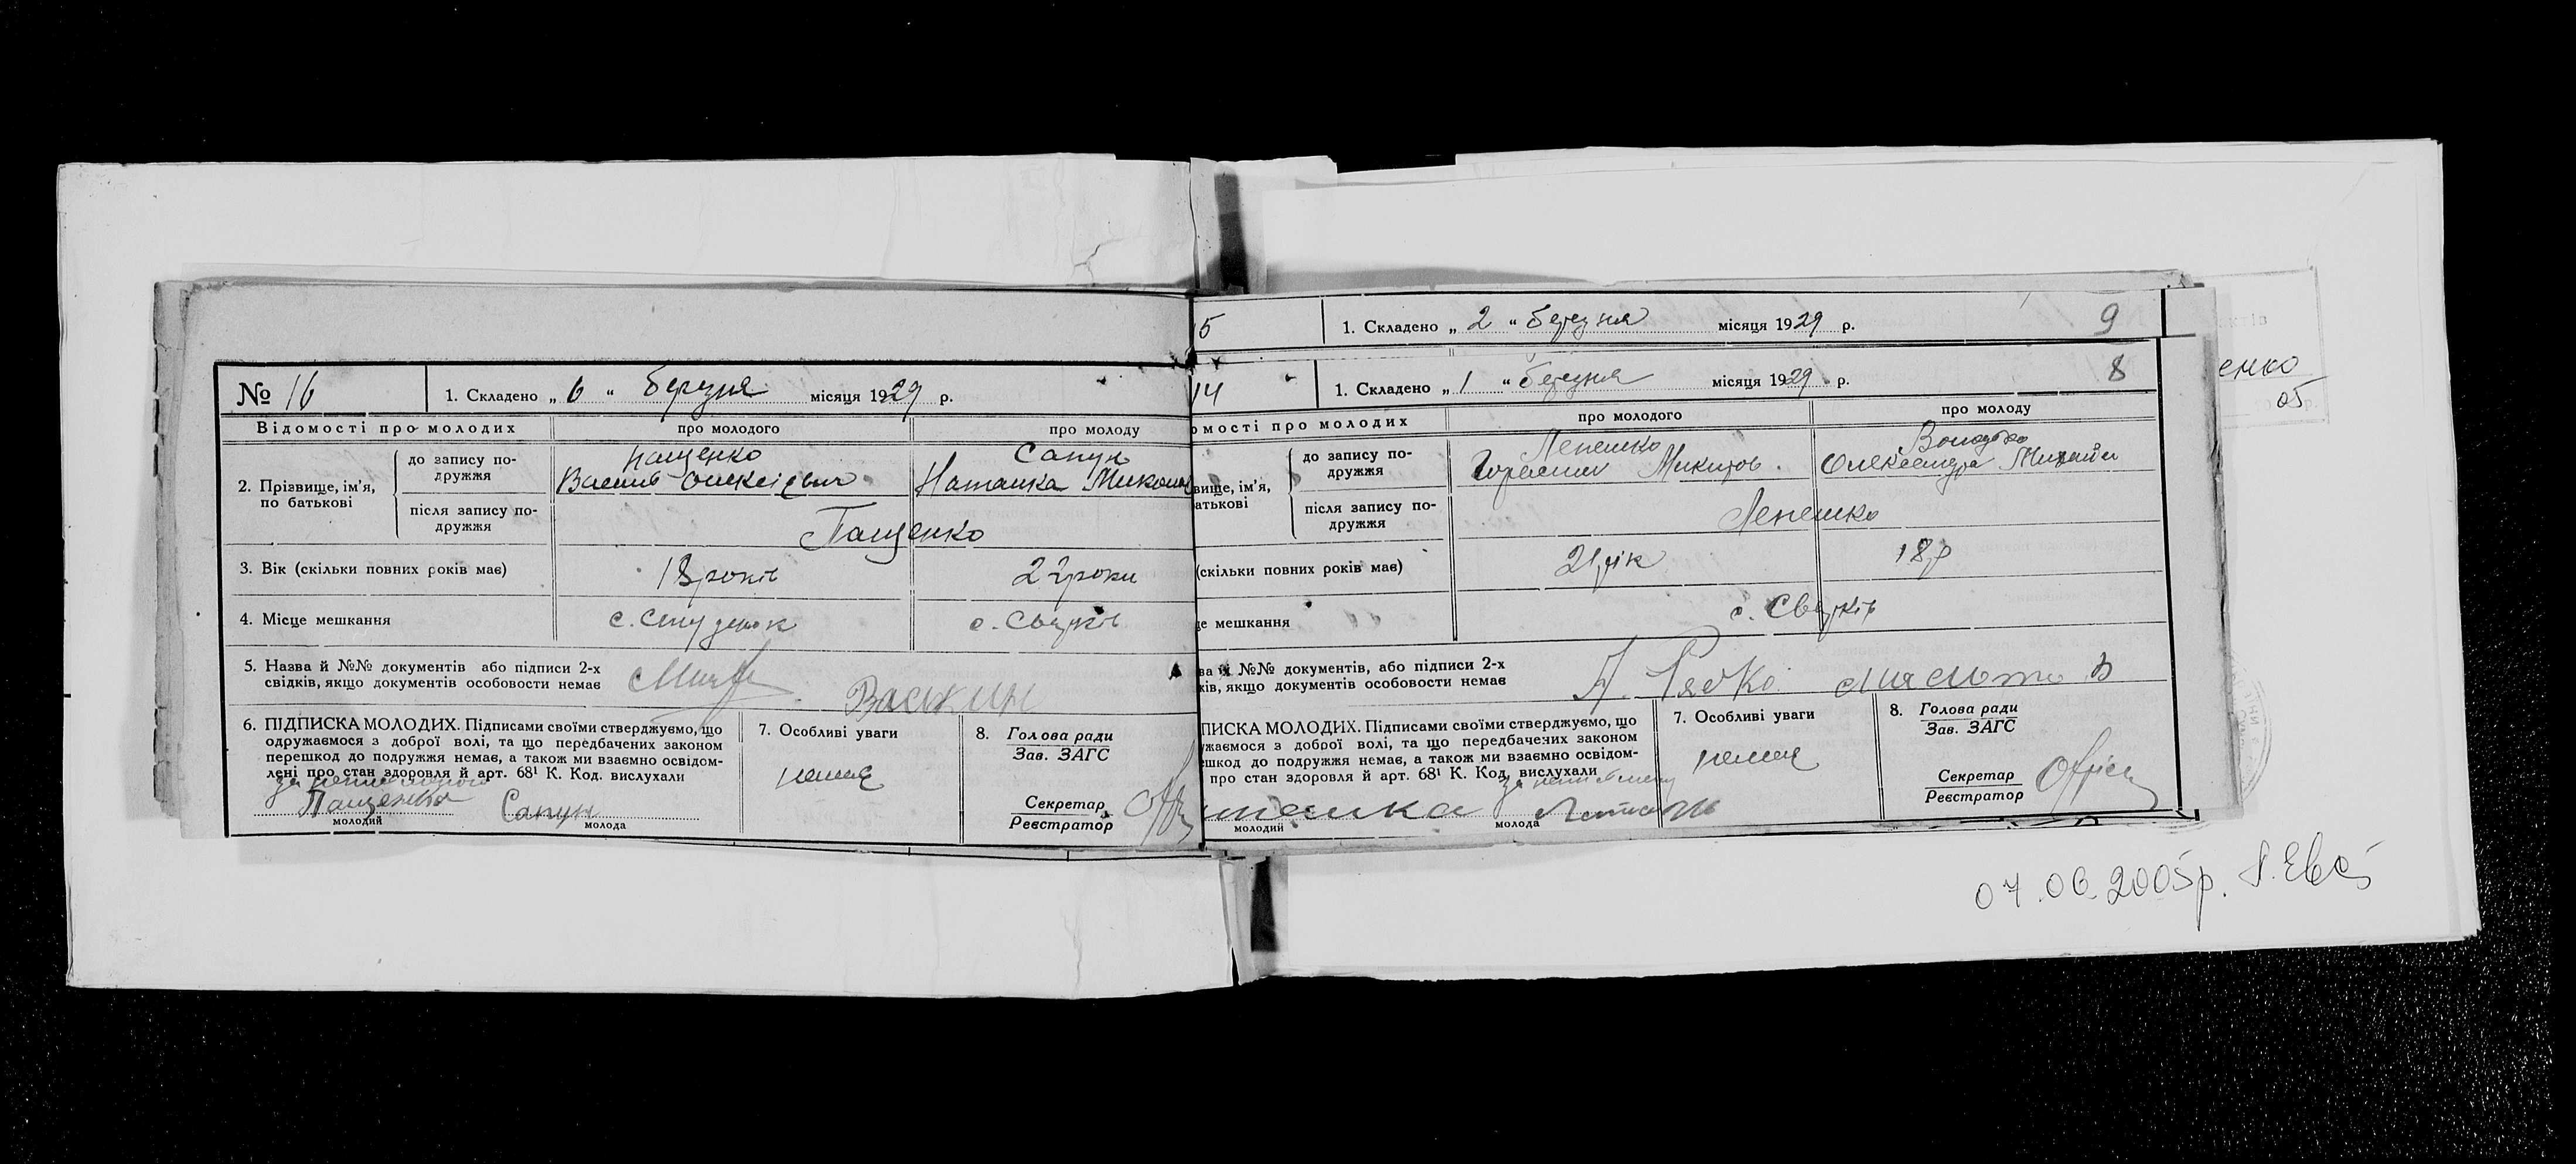 № 16
1. Складено „ 6 “ березня місяця 1929 р.
Відомості про молодих
про молодого
про молоду
2. Прізвище, ім’я, по батькові
до запису по-
дружжя
Пащенко
Сапун
Василь Олексієвич
Наталка Микол
після запису по-
дружжя
Пащенко
3. Вік (скільки повних років має)
18 років
22 роки
4. Місце мешкання
с. Студенок
с. Свірків
5. Назва й №№ документів або підписи 2-х
свідків, якщо документів особовости немає
6. ПІДПИСКА МОЛОДИХ. Підписами своїми стверджуємо, що
одружаємося з доброї волі, та що передбачених законом
перешкод до подружжя немає, а також ми взаємно освідом-
лені про стан здоровля й арт. 68¹ К. Код. вислухали
Пащенко
Сапун
молодий
молода
7. Особливі уваги
немає
8. Голова ради
Зав. ЗАГС
Секретар
Реєстратор
5
1. Складено „ 2 “ березня місяця 1929 р.
9
14
1. Складено „ 1 “ березня місяця 1929 р.
8
омості про молодих
про молодого
про молоду
вище, ім’я,
атькові
до запису по-
дружжя
Лепешко
Микитов.
Олександра Михайл
після запису по-
дружжя
Лепешко
(скільки повних років має)
21 рік
18 р
це мешкання
с. Свірків
ва й №№ документів, або підписи 2-х
ків, якщо документів особовости немає
А. Рябко
ПИСКА МОЛОДИХ. Підписами своїми стверджуємо, що
ужаємося з доброї волі, та що передбачених законом
ешкод до подружжя немає, а також ми взаємно освідом-
про стан здоровля й арт. 68¹ К. Код. вислухали
молодий
молода
7. Особливі уваги
немає
8. Голова ради
Зав. ЗАГС
Секретар
Реєстратор
енко
05
07.06.2005р.